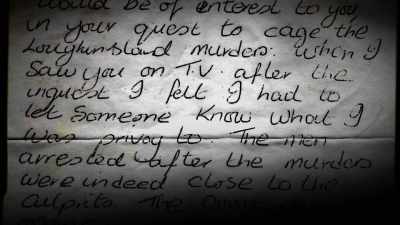 would be of enterest to you
in your quest to cage the
Loughinisland murders. When I
Saw you on T.V. after the
inquest I felt I had to
let Someone Know what I
was privay to. The men
arrested after the murders
were indeed close to the
Culprits. The